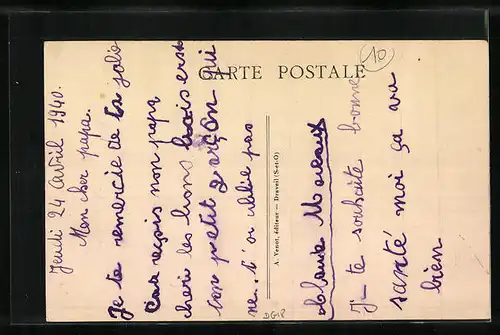 CARTE POSTALE
10
Jeudi 24 avril 1940.
Mon cher papa.
Je te remercie de ta jolie
Carte reçois mon papa
cheri les bons baisers
ton petit garçon qui
ne t'oublie pas
A. Venot, éditeur — Draveil (S-et-O)
Je te souhaite bonne
santé moi ça va
bien
DG18